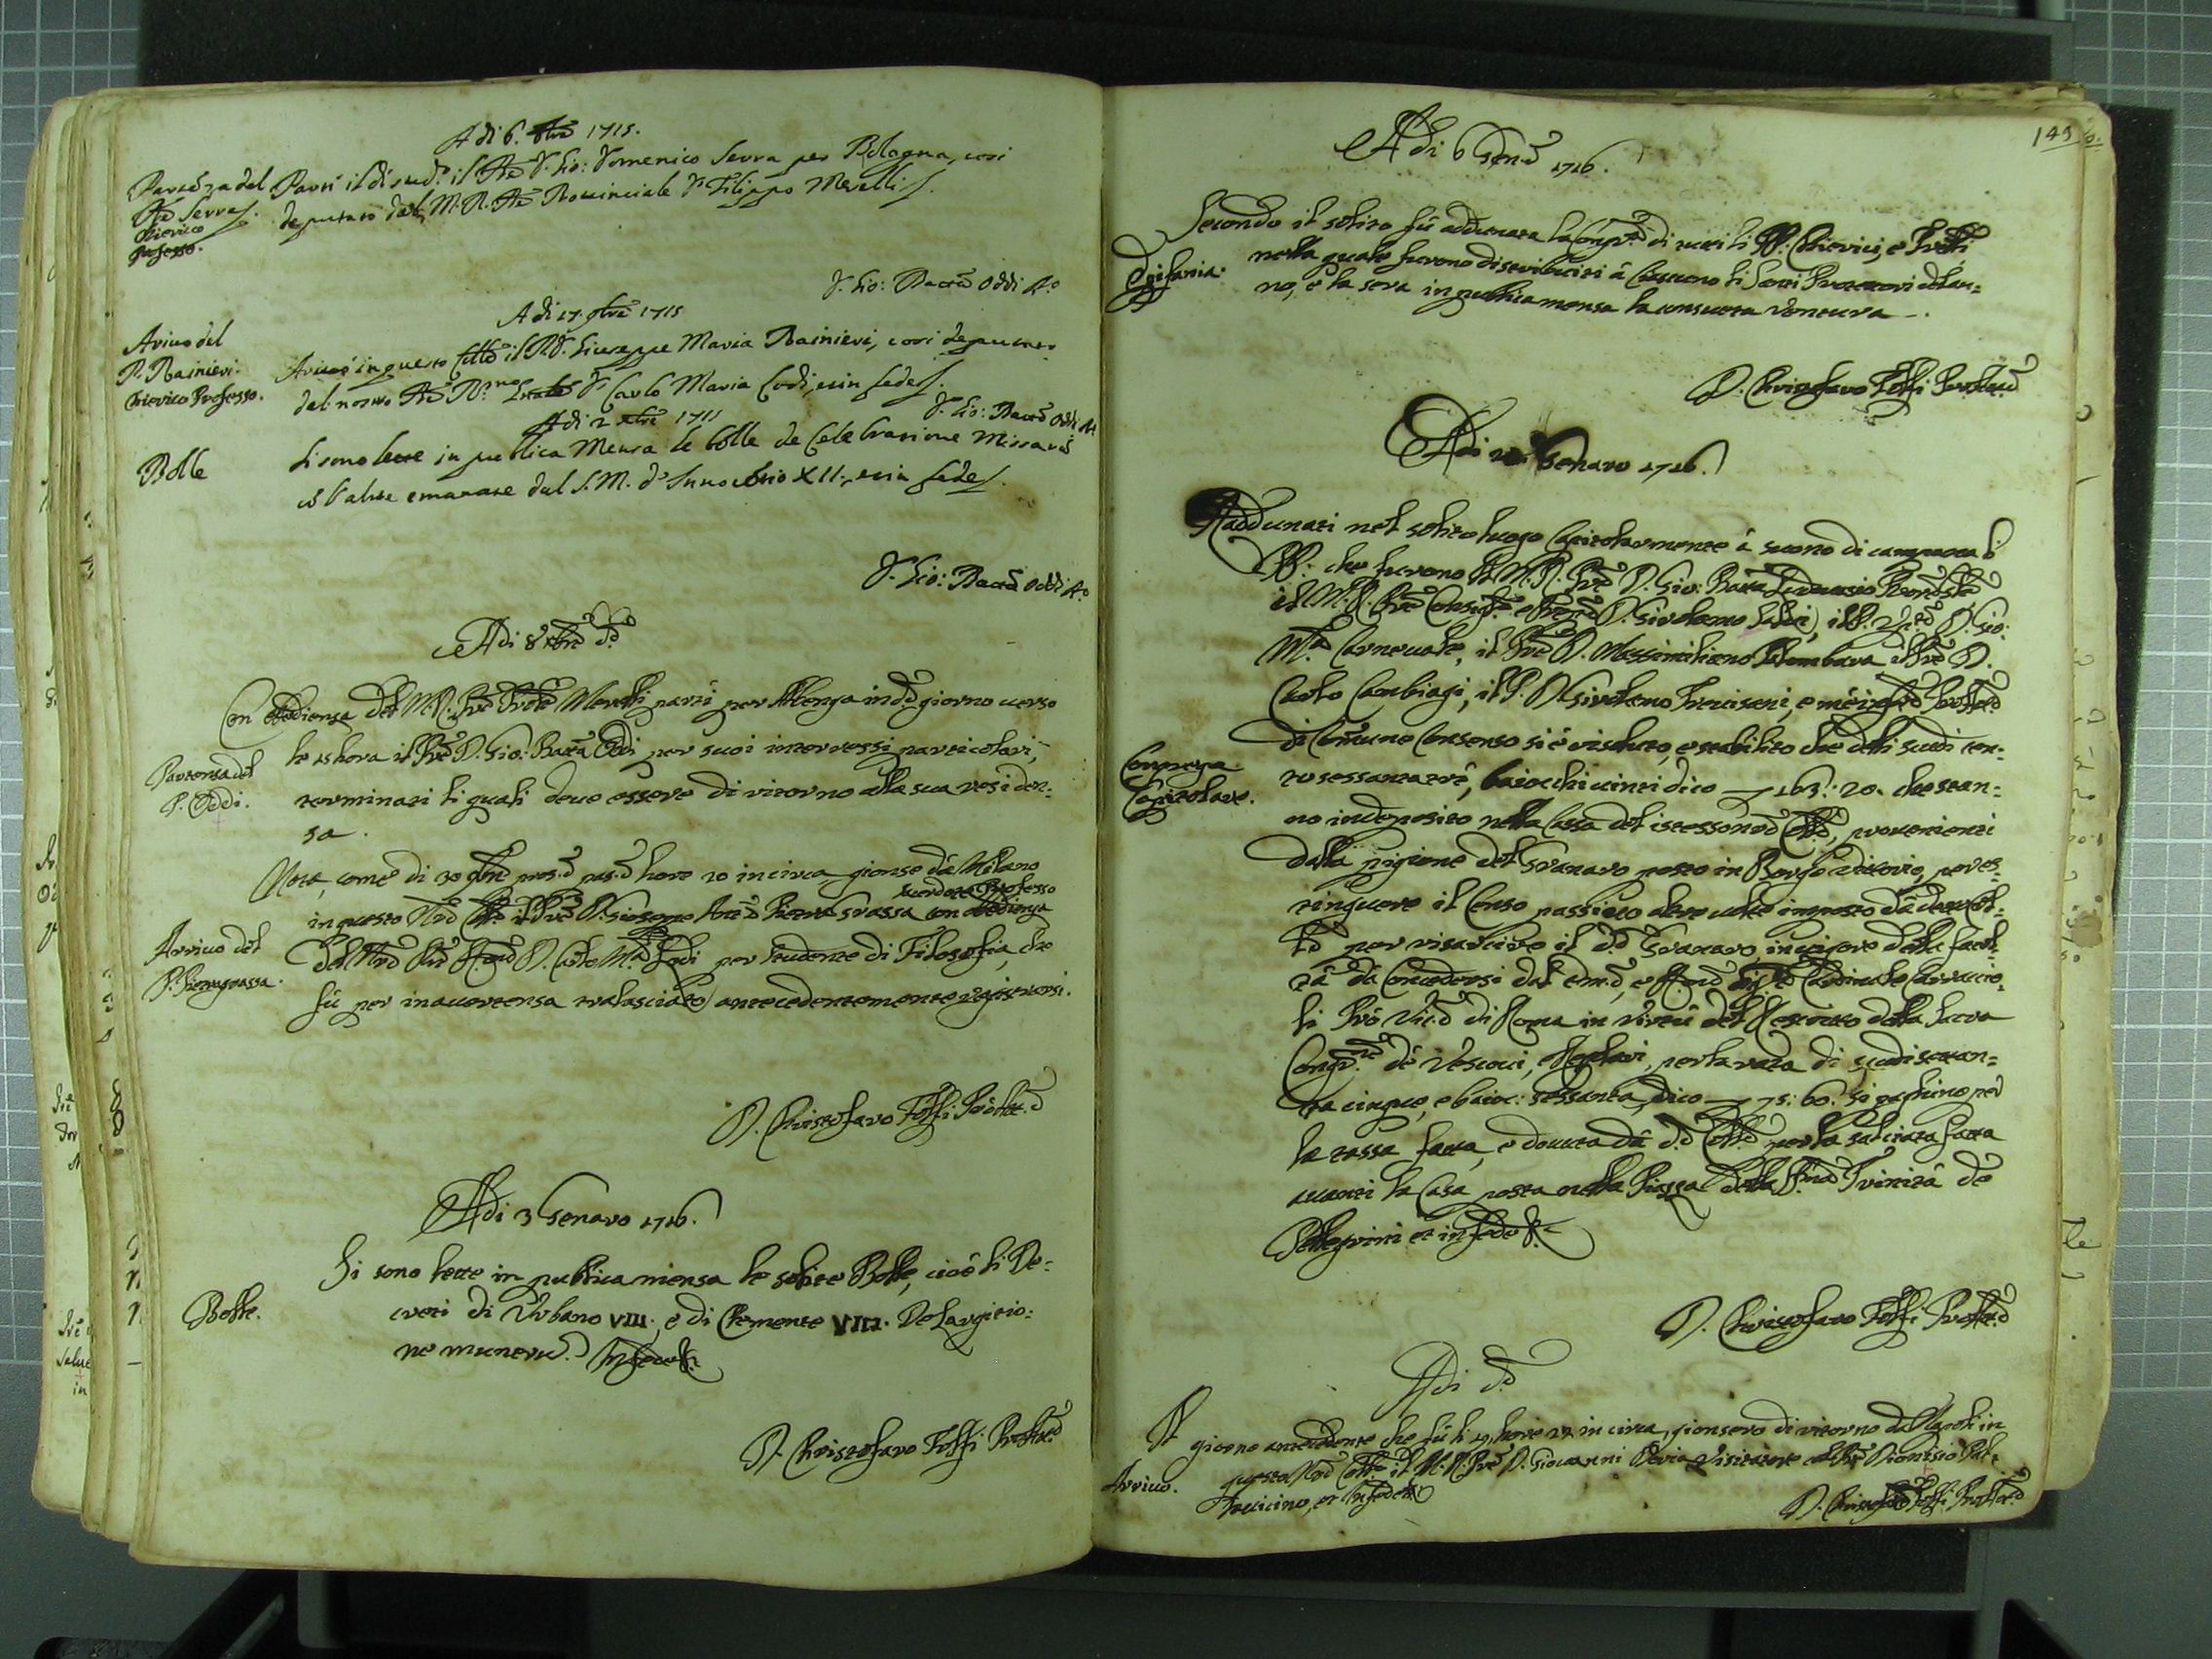 Adi 6. 8bre 1715.
Partenza del
Pre Serra
Chierico
Professo.
Partì il dì sud.o il Pre D. Gio: Domenico Serra per Bologna, così
deputato dal M. R. Pre Provinciale D. Filippo Merelli
D. Gio: Batta Oddi
Adi 17 9bre 1715
Arivo del
P. Rainieri.
Chierico Professo.
Arivò in questo Collo il P. D. Giuseppe Maria Rainieri, così deputato
dal nostro Pre R.mo D. Carlo Maria Lodi, e in fede
D. Gio: Batta Oddi
Adi 2 Xbre 1715
Bolle
Si sono lette in publica Mensa le bolle de Celebratione Missarum
et l'altre emanate dal S. M. d'Innocentio XII., e in fede
D. Gio: Batta Oddi
Adi 8 Xbre do
Con obedienza del M. R. Pre Merelli partì per Albenga in do giorno verso
Partenza del
P. Oddi.
le hora il Pre D. Gio: Batta Oddi per suoi interressi particolari,
terminati li quali deve essere di ritorno alla sua residen:
za.
Nota, come di 30 9bre pros.o pas.o hore 20 in circa gionse da Milano
sacerdote Professo
in questo Nro Collo il Pre D. Gioseppe Pietra Grassa con obedienza
Arrivo del
P. Pietragrassa.
del Nro D. Carlo M.a Lodi per studente di Filosofia, che
fù per inavertenza tralasciato antecedentemente registrarsi.
D. Christofaro Toffi
Adi 3 Genaro 1716.
Bolle.
Si sono lette in publica mensa le solite Bolle, cioè li De:
creti di Urbano VIII., e di Clemente VIII. De largitio:
ne munerum. In fede &
D. Christofaro Toffi
149
Adi 6 Gen.o 1716.
Epifania.
Secondo il solito fù addunata la Congr.ne di tutti li PP. Chierici, e Frelli
nella quale furono distribuiti a ciascuno li Santi Protettori dell'an:
no, e la sera in publica mensa la consueta Ventura -.
D. Christofaro Toffi
Adi Genaro 1716.
Addunati nel solito luogo Capitolarmente à suono di campana li
PP. che furono il M. R. Pre D. Gio: Batta
il M. R. Pre D. Girolamo il P. D. Gio:
M.a Carnevale, il Pre D. Massimiliano Palombara il Pre D.
Carlo Cambiagi, il P. D. Girolamo e
di Comune Consenso si è risoluto, e stabilito che delli scudi cen:
Congrega
Capitolare.
to sessantatrè, baiocchi vinti dico 163:20. che stan:
no in deposito nella Cassa del istesso no Collo, provenienti
dalla pigione del Granaro posto in Borgo Vittorio, per es:
tinguere il Censo passivo altre volte imposto da detto Col:
lo per risarcire il do Granaro, in vigore delle facol:
tà da Concedersi dal Em.o, e Cardinale Carraccio:
li Prò Vic.o di Roma in virtù del Rescritto della Sacra
Congr.ne de Vescovi, e Regolari, per la rata di scudi settan:
ta cinque, e baioc: sessanta, dico 75:60. si paghino per
la tassa fatta, e dovuta da do Collo per la salciata fatta
avanti la Casa posta nella Piazza della SS.ma Trinità de
Pellegrini et in fede &
D. Christofaro Toffi
Adi do
Arrivo.
Il giorno antecedente che fù li 19, hore 22 in circa, gionsero di ritorno da Napoli in
questo Nro Collo il M. R. Pre D. Giovanni Visitatore col Pre Dionisio
et in fede &
D. Christofaro Toffi